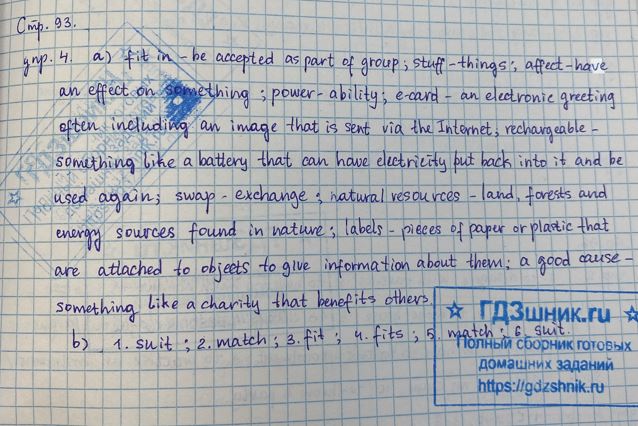 Стр. 93.
упр. 4. a) fit in - be accepted as part of group; stuff - things; affect - have
an effect on something; power - ability; e-card - an electronic greeting
often including an image that is sent via the Internet; rechargeable -
something like a battery that can have electricity put back into it and be
used again; swap - exchange; natural resources - land, forests and
energy sources found in nature; labels - pieces of paper or plastic that
are attached to objects to give information about them; a good cause -
something like a charity that benefits others.
b) 1. suit; 2. match; 3. fit; 4. fits; 5. match; 6. suit.
ГДЗшник.ru
Полный сборник готовых
домашних заданий
https://gdzshnik.ru